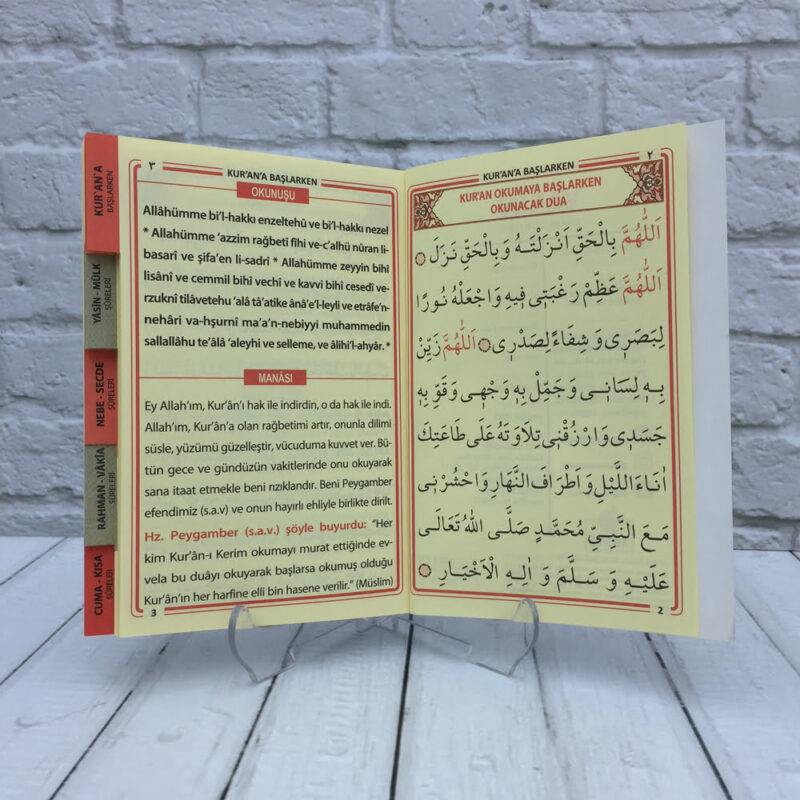 KUR'AN'A
BAŞLARKEN
YÂSÎN - MÜLK
SÛRELERİ
NEBE - SECDE
SÛRELERİ
RAHMAN - VÂKIA
SÛRELERİ
CUMA - KISA
SÛRELER
٣
KUR'AN'A BAŞLARKEN
OKUNUŞU
Allâhümme bi'l-hakkı enzeltehû ve bi'l-hakkı nezel
* Allâhümme 'azzim rağbetî fîhi ve-c'alhü nûran li-
basarî ve şifâ'en li-sadrî * Allahümme zeyyin bihî
lisânî ve cemmil bihî vechî ve kavvi bihî cesedî ve-
rzuknî tilâvetehu 'alâ tâ'atike ânâe'l-leyli ve etrâfe'n-
nehâri va-hşurnî ma'a'n-nebiyyi muhammedin
sallallâhu te'âlâ 'aleyhi ve selleme, ve âlihi'l-ahyâr. *
MANÂSI
Ey Allah'ım, Kur'ân'ı hak ile indirdin, o da hak ile indi.
Allah'ım, Kur'ân'a olan rağbetimi artır, onunla dilimi
süsle, yüzümü güzelleştir, vücuduma kuvvet ver. Bü-
tün gece ve gündüzün vakitlerinde onu okuyarak
sana itaat etmekle beni rızıklandır. Beni Peygamber
efendimiz (s.a.v) ve onun hayırlı ehliyle birlikte dirilt.
Hz. Peygamber (s.a.v.) şöyle buyurdu: "Her
kim Kur'ân-ı Kerim okumayı murat ettiğinde ev-
vela bu duâyı okuyarak başlarsa okumuş olduğu
Kur'ân'ın her harfine elli bin hasene verilir." (Müslim)
3
٢
KUR'AN'A BAŞLARKEN
KUR'AN OKUMAYA BAŞLARKEN
OKUNACAK DUA
اَللّٰهُمَّ بِالْحَقِّ اَنْزَلْتَهُ وَبِالْحَقِّ نَزَلَ
اَللّٰهُمَّ عَظِّمْ رَغْبَتِى فِيهِ وَاجْعَلْهُ نُورًا
لِبَصَرِى وَ شِفَاءً لِصَدْرِى اَللّٰهُمَّ زَيِّنْ
بِهِ لِسَانِى وَجَمِّلْ بِهِ وَجْهِى وَقَوِّ بِهِ
جَسَدِى وَارْزُقْنِى تِلَاوَتَهُ عَلَى طَاعَتِكَ
اٰنَاءَ اللَّيْلِ وَ اَطْرَافَ النَّهَارِ وَاحْشُرْنِى
مَعَ النَّبِيِّ مُحَمَّدٍ صَلَّى اللّٰهُ تَعَالَى
عَلَيْهِ وَ سَلَّمَ وَ اٰلِهِ الْاَخْيَارِ
2